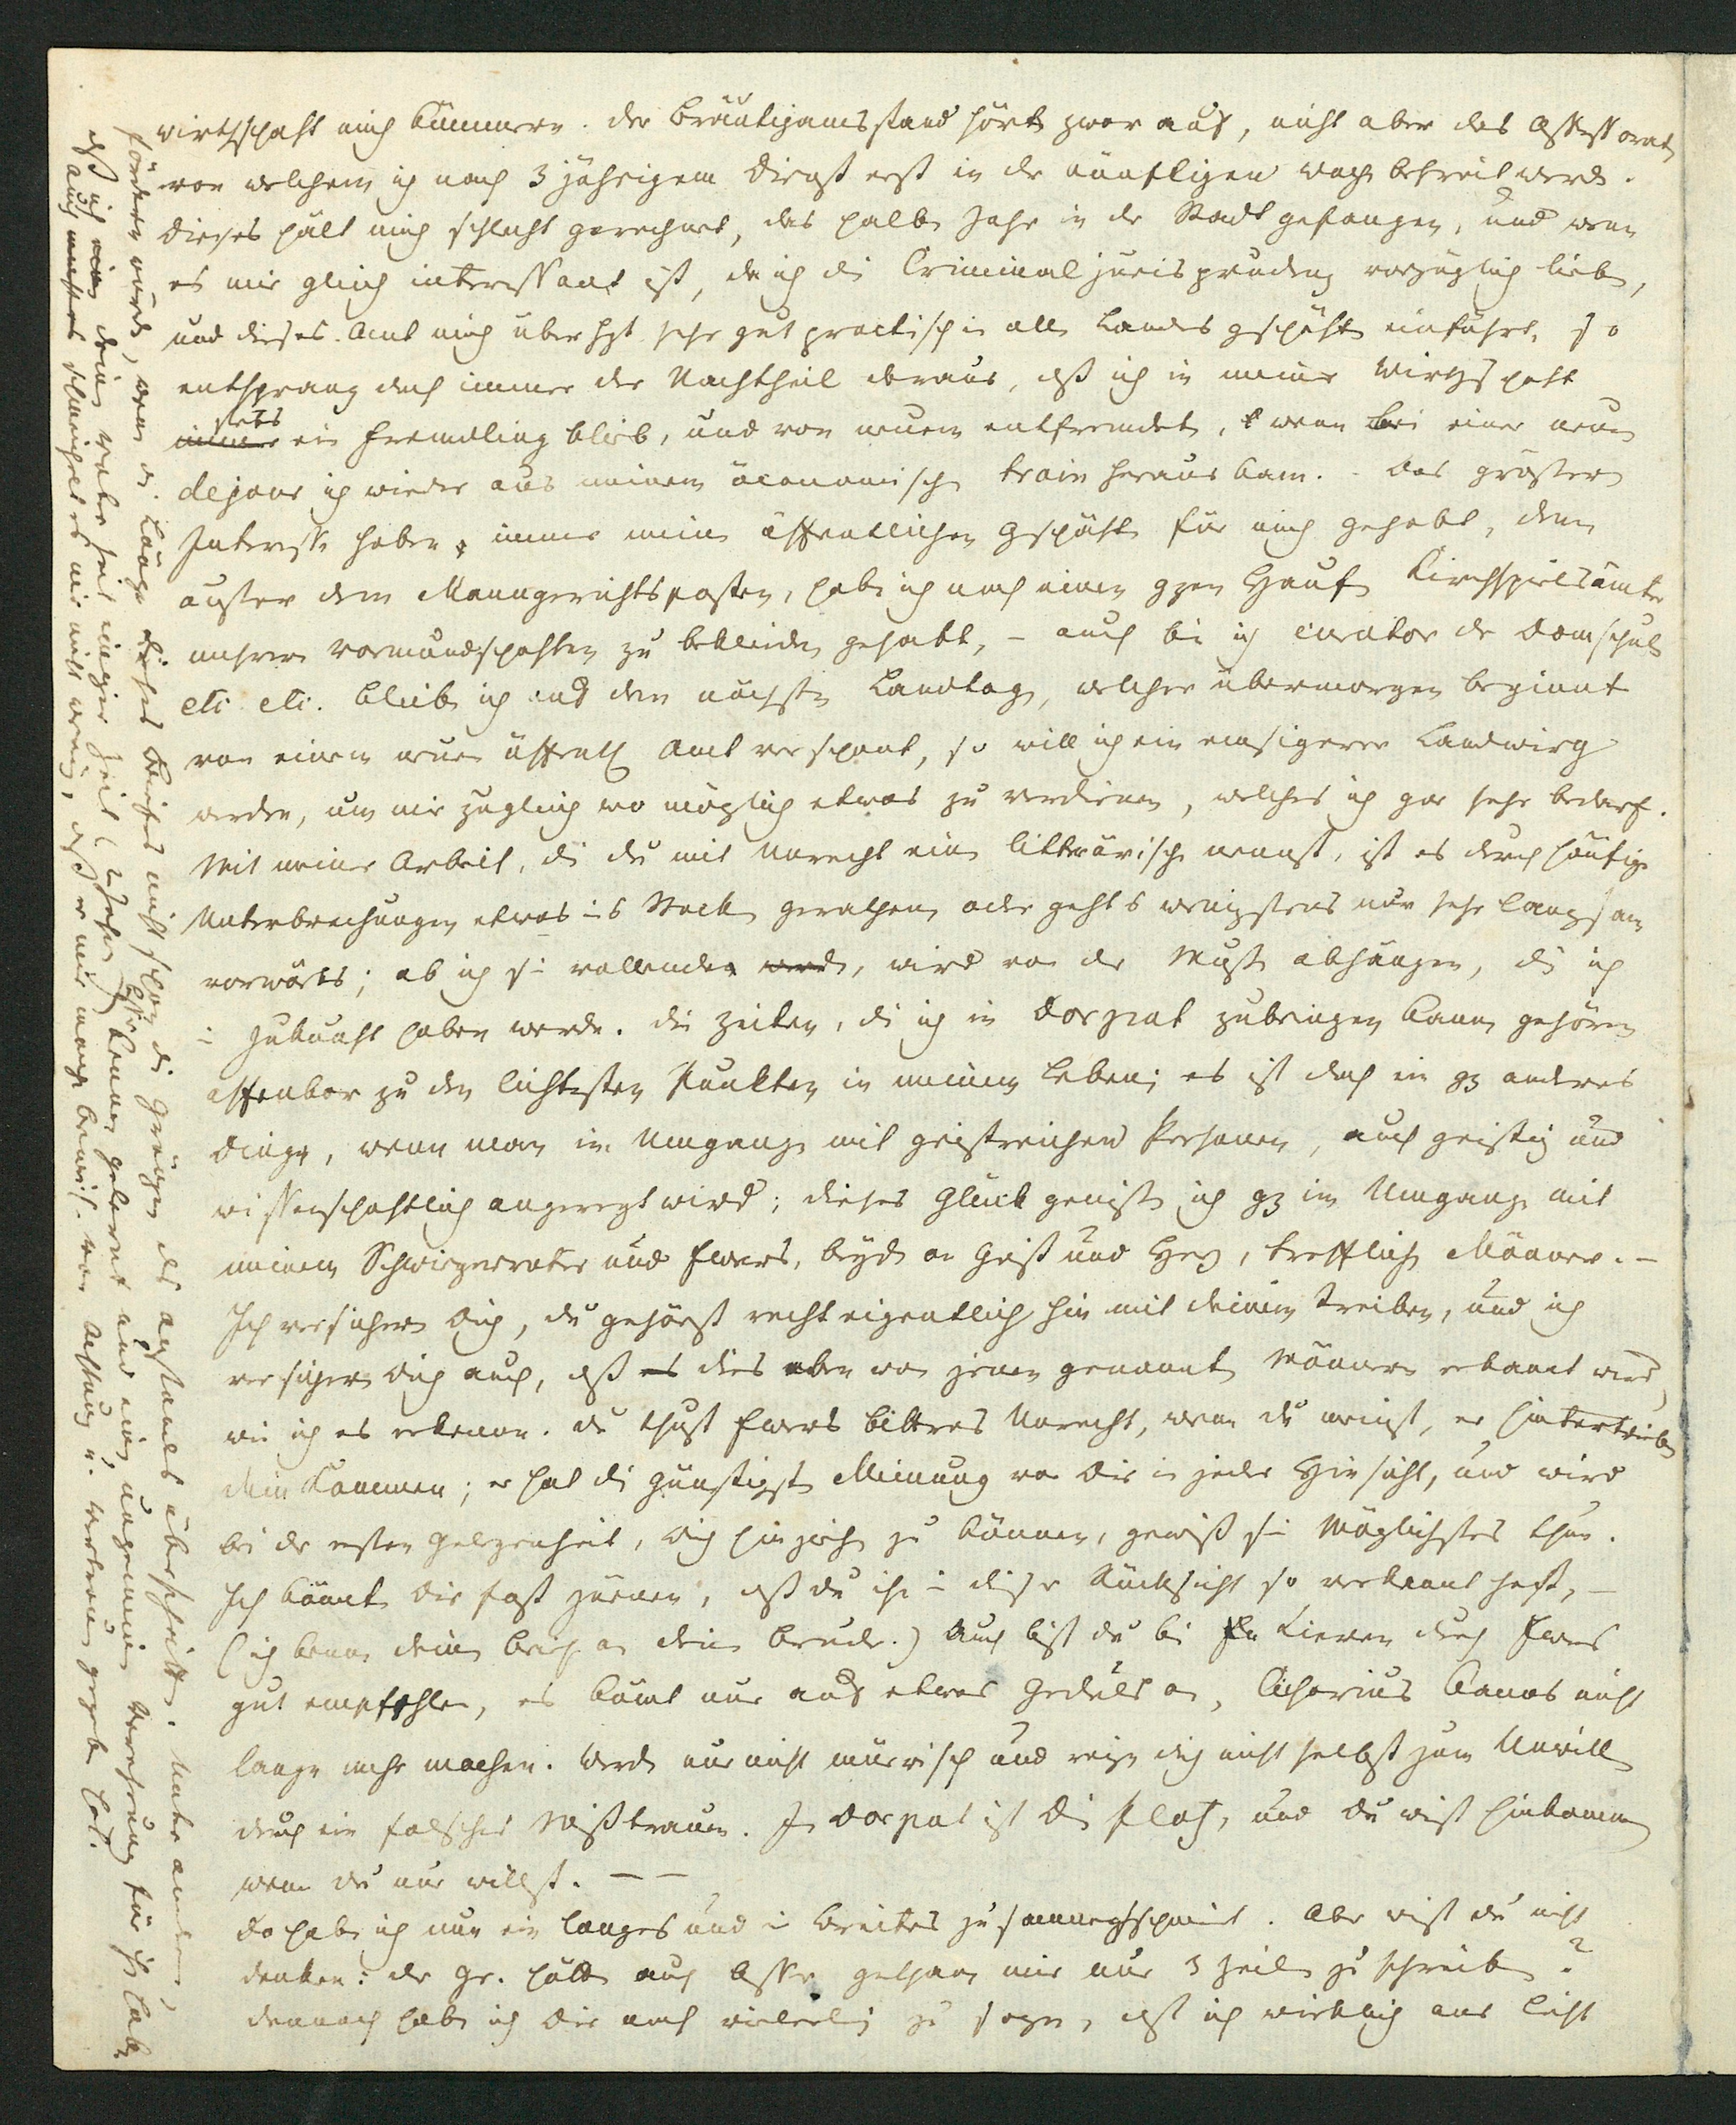 wirthschaft mich kümmern. Der Bräutigamsstand hörte zwar auf, nicht aber das Assessorat,
von welchem ich nach 3 jährigem Dienst erst in der künftigen Woche befreit werde.
Dieses hält mich schlecht gerechnet, das halbe Jahr in der Stadt gefangen, und wenn
es mir gleich interessant ist, da ich die Criminaljurisprudenz vorzüglich liebe,
und dieses Amt mich überhpt sehr gut practisch in alle Landesgschäfte einführt, so
entsprang doch immer der Nachtheil daraus, dß ich in meiner Wirthschaft
stets
immer ein Fremdling blieb, und von neuem entfremdete, wenn bei einer neuen
dejour ich wieder aus meinem öconomischen train heraus kam. Das größere
Interesse haben immer meine öffentlichen Gschäfte für mich gehabt, denn
außer dem Manngerichtsposten, habe ich noch einen gzen Haufen Kirchspielsämter
mehrere Vormundschaften zu bekleiden gehabt, – auch bin ich curator der Domschule
etc etc. Bleibe ich auf dem nächsten Landtage, welcher übermorgen beginnt
von einem neuen öffentl Amt verschont, so will ich ein emsigerer Landwirth
werden, um mir zugleich wo möglich etwas zu verdienen, welches ich gar sehr bedarf.
Mit meiner Arbeit, die du mit Unrecht eine litterärische nennst, ist es durch häufige
Unterbrechungen etwas ins Stocken gerathen, oder gehts wenigstens nur sehr langsam
vorwärts; ob ich sie vollenden werde, wird von der Muße abhängen, die ich
in Zukunft haben werde. Die Zeiten, die ich in Dorpat zubringen kann, gehören
offenbar zu den lichtesten Punkten in meinem Leben; es ist doch ein gz anderes
Ding, wenn man im Umgange mit geistreichen Personen, auch geistig und
wissenschaftlich angeregt wird; dieses Glück genieße ich gz im Umgange mit
meinem Schwiegervater und Ewers, beyde an Geist und Herz, treffliche Männer. –
Ich versichere Dich, du gehörst recht eigentlich hin mit deinem Treiben, und ich
versichere dich auch, dß es dies eben von jenen genannten Männern erkannt wird,
wie ich es erkenne. Du thust Ewers bittres Unrecht, wenn du meinst, er hintertriebe
dein Kommen; er hat die günstigste Meinung von Dir in jeder Hinsicht, und wird
bei der ersten Gelegenheit, dich hinziehn zu können, gewiß sein Möglichstes thun.
Ich könnte Dir fast zürnen, dß du ihn in dieser Rücksicht so verkannt hast, –
(ich kenne deinen Brief an deinen Bruder.) Auch bist du bei Lieven durch Ewers
gut empfohlen, es kömt nur auf etwas Geduld an, Cichorius kanns nicht
lange mehr machen. Werde nur nicht mürrisch und reize dich nicht selbst zum Unwillen
durch ein falsches Mißtrauen. In Dorpat ist Dein Platz, und du wirst hinkommen
wenn du nur willst. – –
Da habe ich nun ein langes und ein breites zusammengeschmiert. Aber wirst du nicht
denken: der Gr. hätte auch besser gethan mir nur 3 Zeilen zu schreiben?
Dennoch habe ich Dir noch vielerlei zu sagen, dß ich wirklich ans Licht
fördern würde, wenn d. Länge dieses Briefes nicht schon die Gränzen des Anstands überschritte. Unter anderem,
dß ich deinen Vater seit einiger Zeit besser kennen gelernt und eine ungemeine Verehrung für ihn habe,
auch schmeichelt es mir nicht wenig, dß er mir manche Beweise von Achtung u. Vertraun gegeben hat.